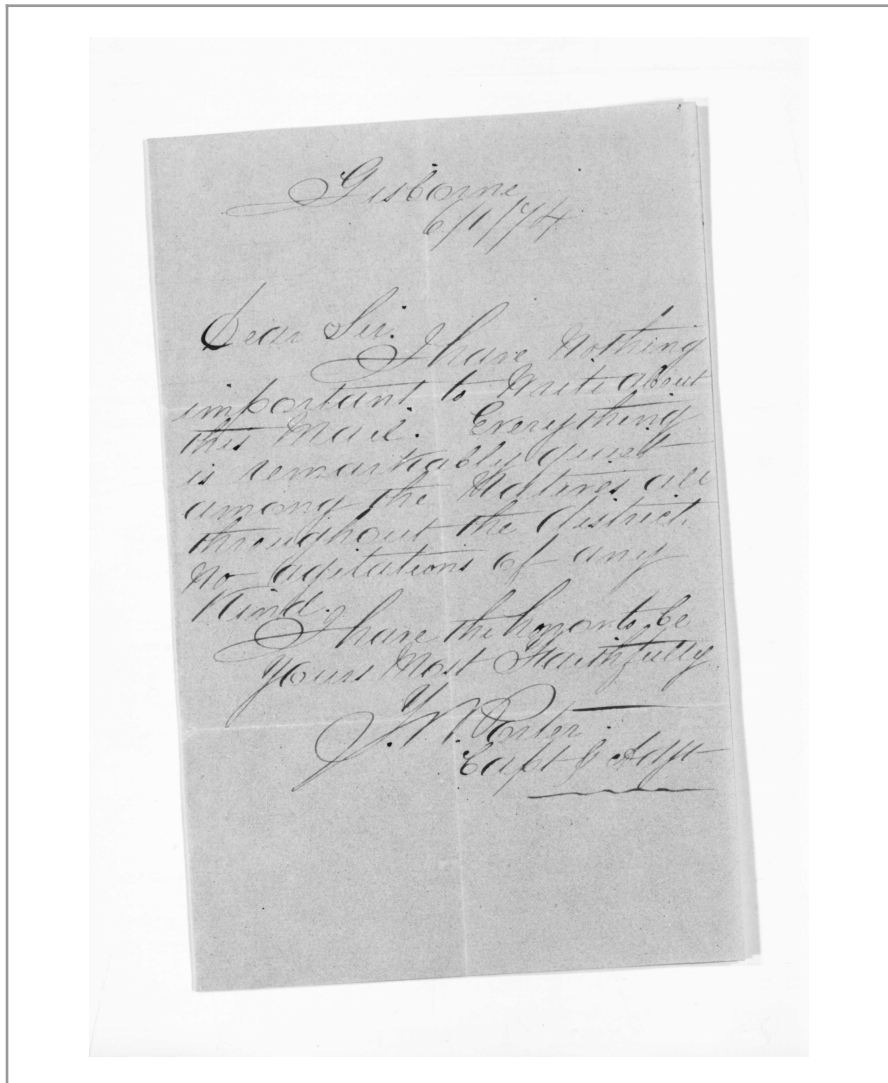 Gisborne
6/1/74
Dear Sir.
I have Nothing
important to Write about
this Mail. Everything
is remarkably quiet
among the Natives all
throughout the district.
No agitations of any
Kind.
I have the honor to be
Yours Most Faithfully
T. W. Porter
Capt & Adjt